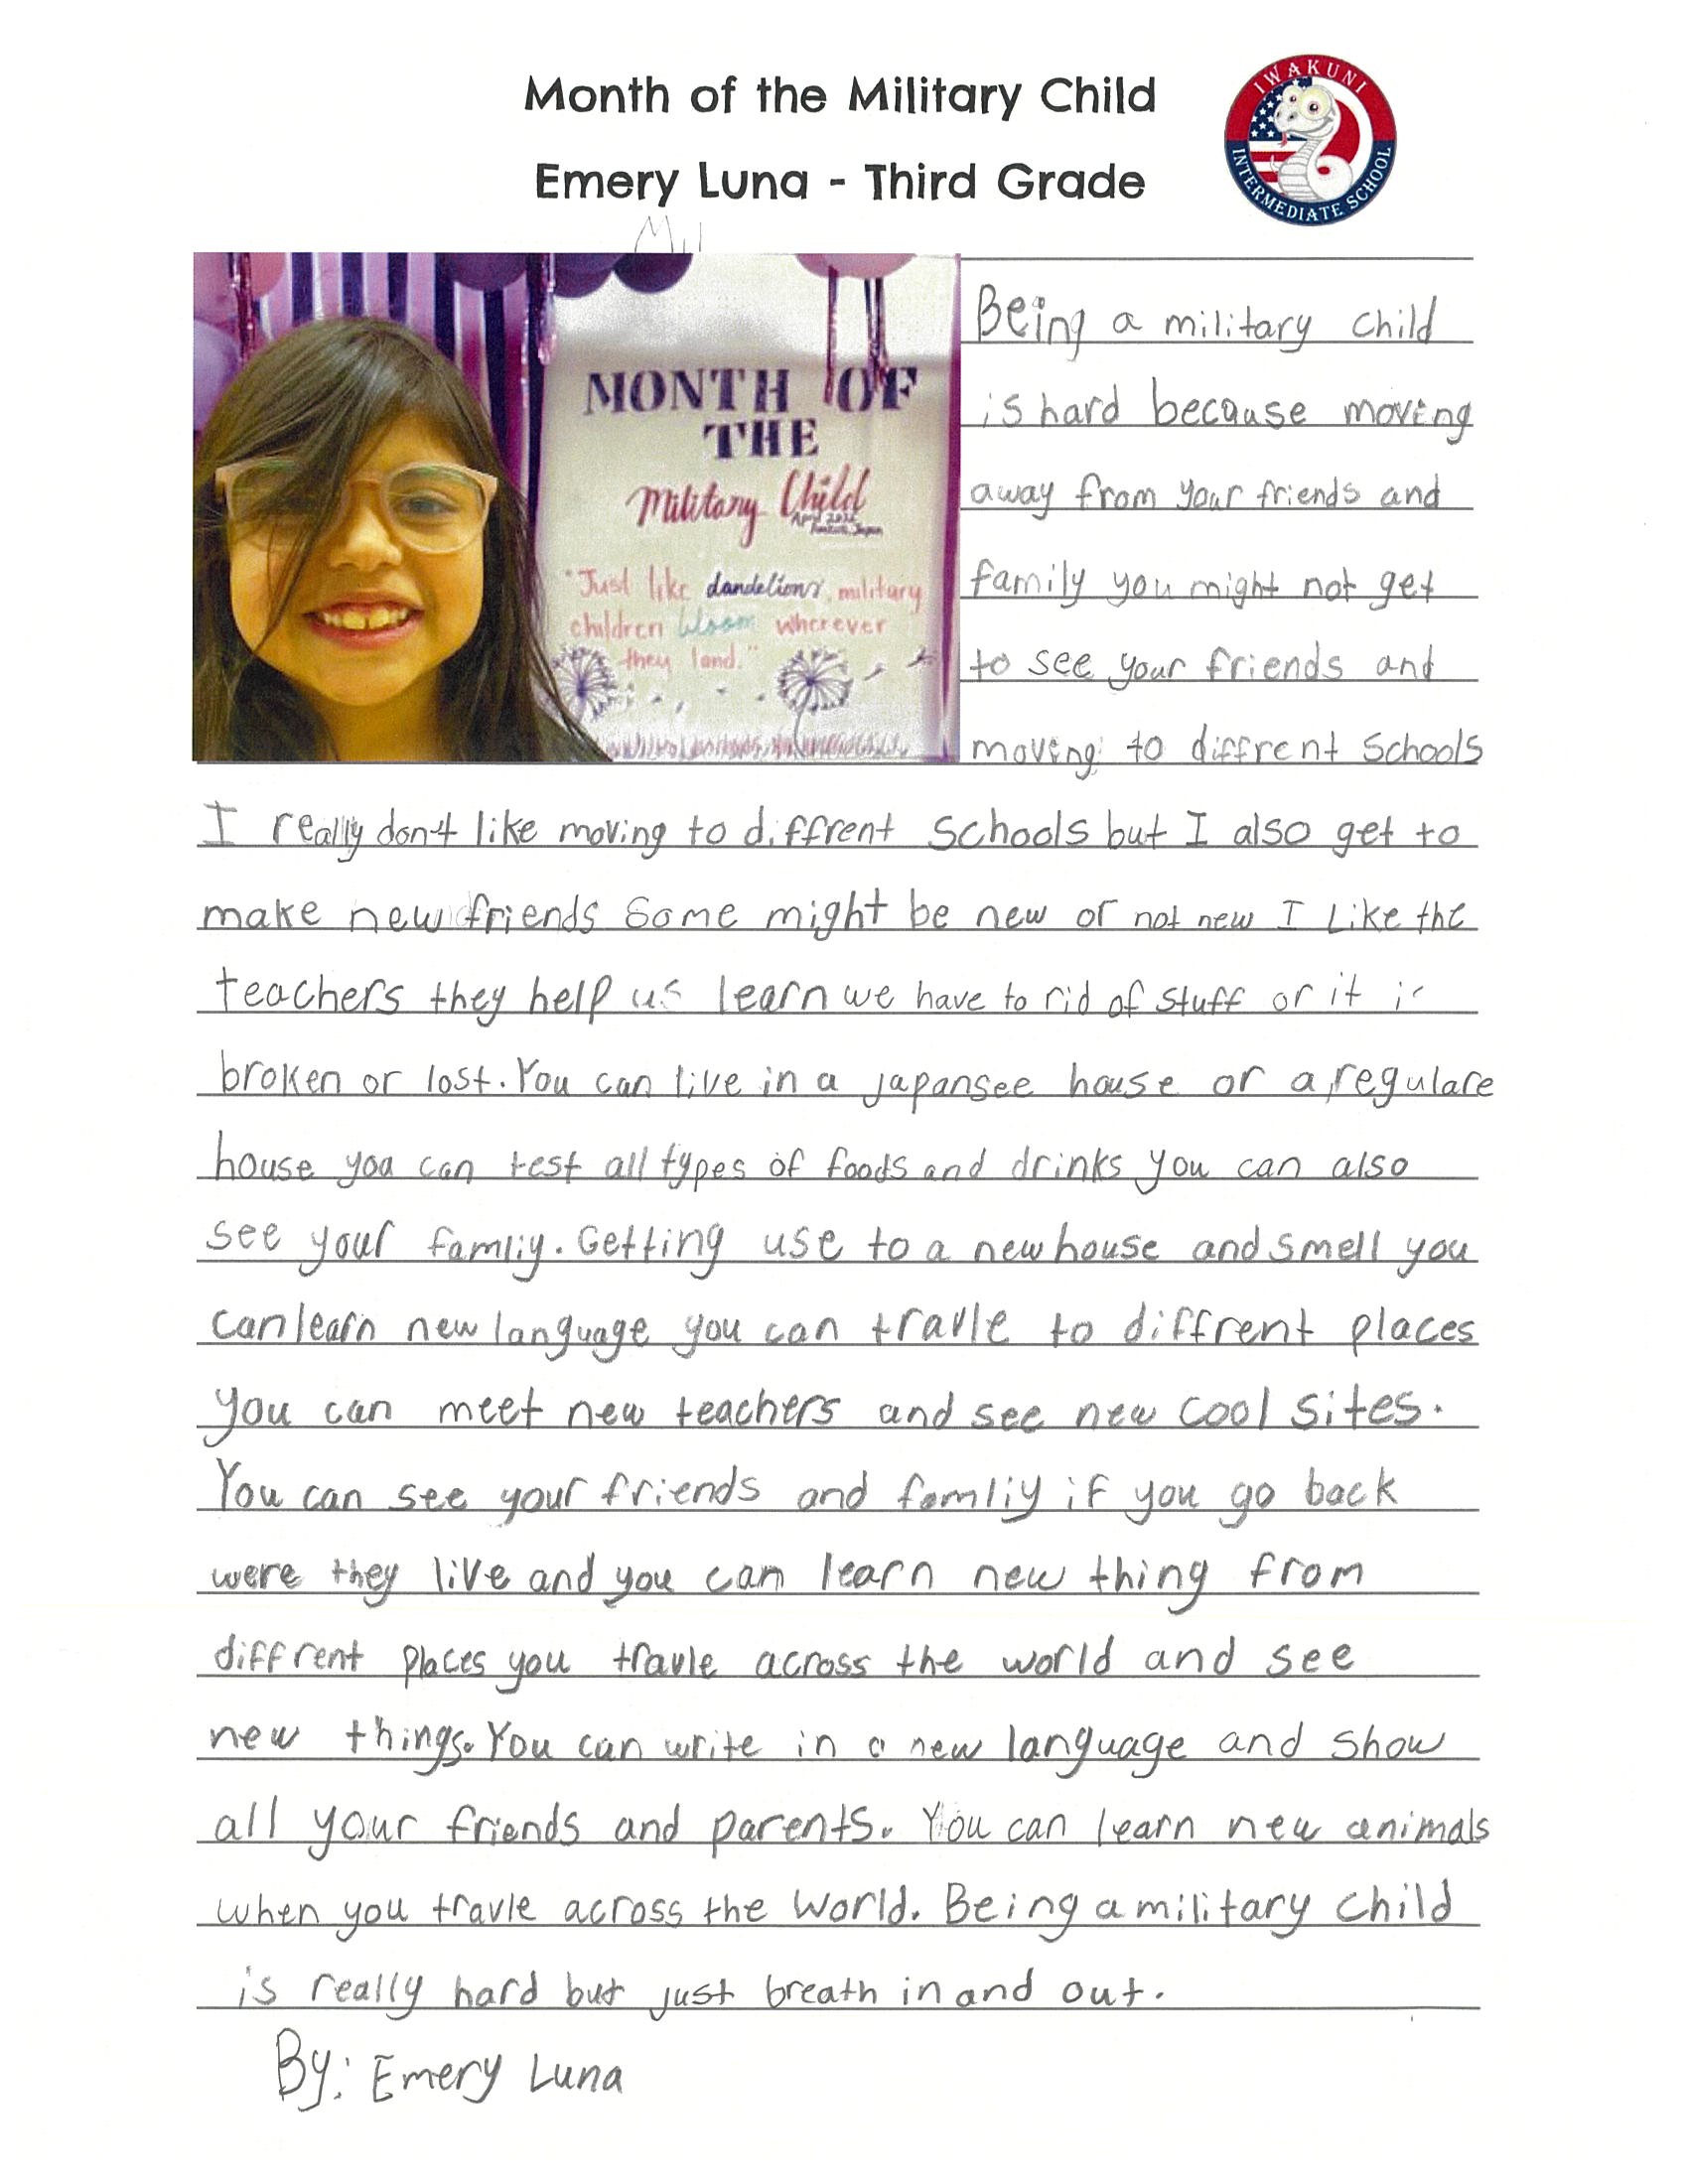 Month of the Military Child
Emery Luna - Third Grade
IWAKUNI
INTERMEDIATE SCHOOL
MONTH OF
THE
Military Child
April 2022
Iwakuni, Japan
"Just like dandelions, military
children bloom wherever
they land."
Being a military child
is hard because moving
away from your friends and
family you might not get
to see your friends and
moving to diffrent Schools
I really don't like moving to diffrent Schools but I also get to
make new friends Some might be new or not new I Like the
teachers they help us learn we have to rid of stuff or it is
broken or lost. You can live in a japansee house or a regulare
house you can test all types of foods and drinks you can also
see your famliy. Getting use to a new house and smell you
can learn new language you can travle to diffrent places
you can meet new teachers and see new cool sites.
You can see your friends and famliy if you go back
were they live and you can learn new thing from
diffrent places you travle across the world and see
new things. You can write in a new language and show
all your friends and parents. You can learn new animals
when you travle across the world. Being a military child
is really hard but just breath in and out.
By: Emery Luna